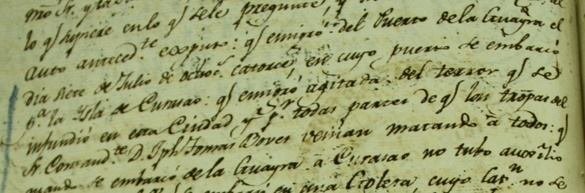 lo qᵉ supiere en lo qᵉ se le pregunte, y
auto anteced.te expuso: qᵉ emigró del Puerto de la Guayra el
dia siete de Julio de ochoc.s catorce, en cuyo puerto se embarcó
p.a la Isla de Curasao: qᵉ emigró agitada del terror qᵉ se
infundió en esta Ciudad y p.r todas partes de qᵉ las tropas del
S.r Comand.te D. Jph Tomas Boves venian matando à todos: qᵉ
quando se embarcó de la Guayra à Curasao no tubo auxilio
en una Goleta, cuyo Cap.n no se